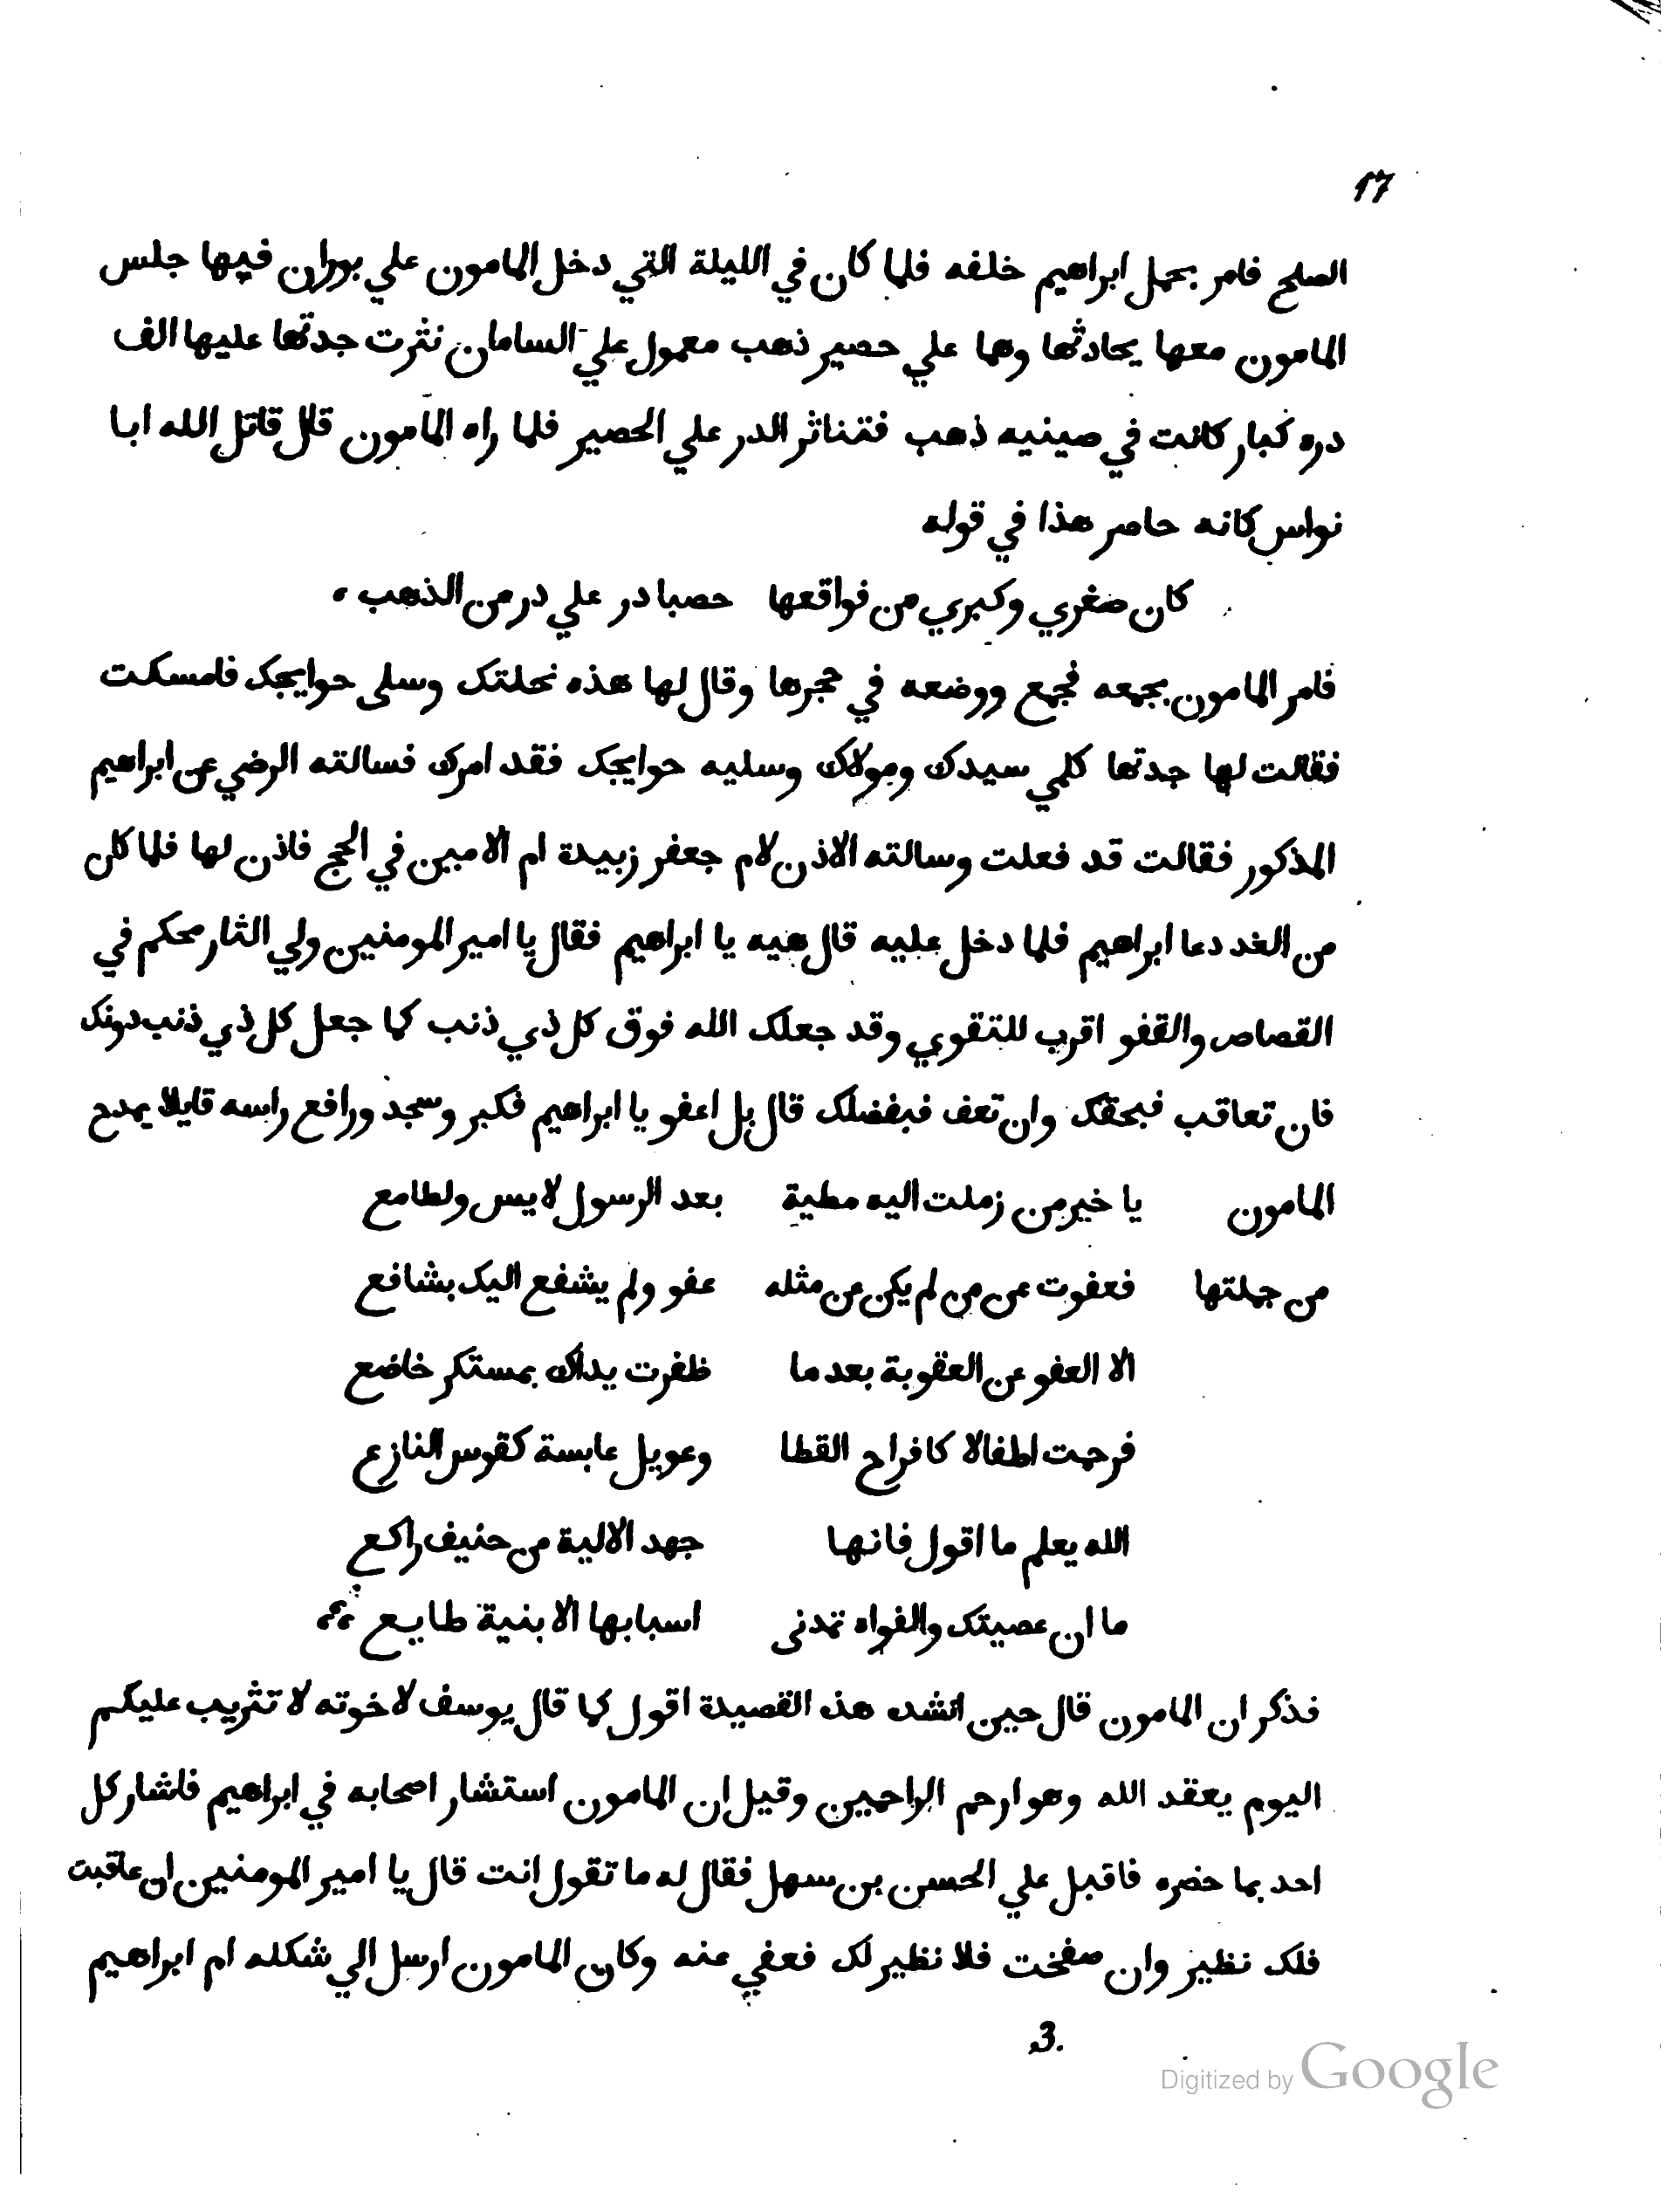 17
الصلح فامر بحمل ابراهيم خلفه فلما كان في الليلة التي دخل المامون علي بوران فيها جلس
المامون معها يحادثها وهما علي حصير ذهب معمول علي السامان نثرت جدتها عليها الف
دره كبار كانت في صينيه ذهب فتناثر الدر علي الحصير فلما راه المامون قال قاتل الله ابا
نواس كانه حاصر هذا في قوله
كان صغري وكبري من فواقعها حصبا در علي در من الذهب
فامر المامون بجمعه فجمع ووضعه في حجرها وقال لها هذه نحلتك وسلى حوايجك فامسكت
فقالت لها جدتها كلمي سيدك ومولاك وسليه حوايجك فقد امرك فسالته الرضي عن ابراهيم
المذكور فقالت قد فعلت وسالته الاذن لام جعفر زبيدة ام الامين في الحج فاذن لها فلما كان
من الغد دعا ابراهيم فلما دخل عليه قال هيه يا ابراهيم فقال يا امير المومنين ولي الثار محكم في
القصاص والقفو اقرب للتقوي وقد جعلك الله فوق كل ذي ذنب كما جعل كل ذي ذنب دونك
فان تعاقب فبحقك وان تعف فبفضلك قال بل اعفو يا ابراهيم فكبر وسجد ورافع راسه قايلا يمدح
المامون يا خير من زملت اليه مطية بعد الرسول لايس ولطامع
من جملتها فعفوت عن من لم يكن عن مثله عفو ولم يشفع اليك بشافع
الا العفو عن العقوبة بعد ما ظفرت يداك بمستكر خاضع
فرحمت اطفالا كافراح القطا وعويل عابسة كقوس النازع
الله يعلم ما اقول فانها جهد الالية من حنيف راكع
ما ان عصيتك والفواه تمدنى اسبابها الا بنية طايع
فذكر ان المامون قال حين انشده هذه القصيدة اقول كما قال يوسف لاخوته لا تثريب عليكم
اليوم يعقد الله وهو ارحم الراحمين وقيل ان المامون استشار اصحابه في ابراهيم فاشار كل
احد بما حضره فاقبل علي الحسن بن سهل فقال له ما تقول انت قال يا امير المومنين ان عاقبت
فلك نظير وان صفخت فلا نظير لك فعفي عنه وكان المامون ارسل الي شكله ام ابراهيم
3.
Digitized by Google